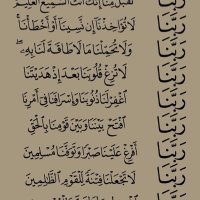 رَبَّنَا تَقَبَّلْ مِنَّا إِنَّكَ أَنْتَ السَّمِيعُ الْعَلِيمُ
رَبَّنَا لَا تُؤَاخِذْنَا إِنْ نَسِينَا أَوْ أَخْطَأْنَا
رَبَّنَا وَلَا تُحَمِّلْنَا مَا لَا طَاقَةَ لَنَا بِهِ
رَبَّنَا لَا تُزِغْ قُلُوبَنَا بَعْدَ إِذْ هَدَيْتَنَا
رَبَّنَا اغْفِرْ لَنَا ذُنُوبَنَا وَإِسْرَافَنَا فِي أَمْرِنَا
رَبَّنَا افْتَحْ بَيْنَنَا وَبَيْنَ قَوْمِنَا بِالْحَقِّ
رَبَّنَا أَفْرِغْ عَلَيْنَا صَبْرًا وَتَوَفَّنَا مُسْلِمِينَ
رَبَّنَا لَا تَجْعَلْنَا فِتْنَةً لِلْقَوْمِ الظَّالِمِينَ
رَبَّنَا